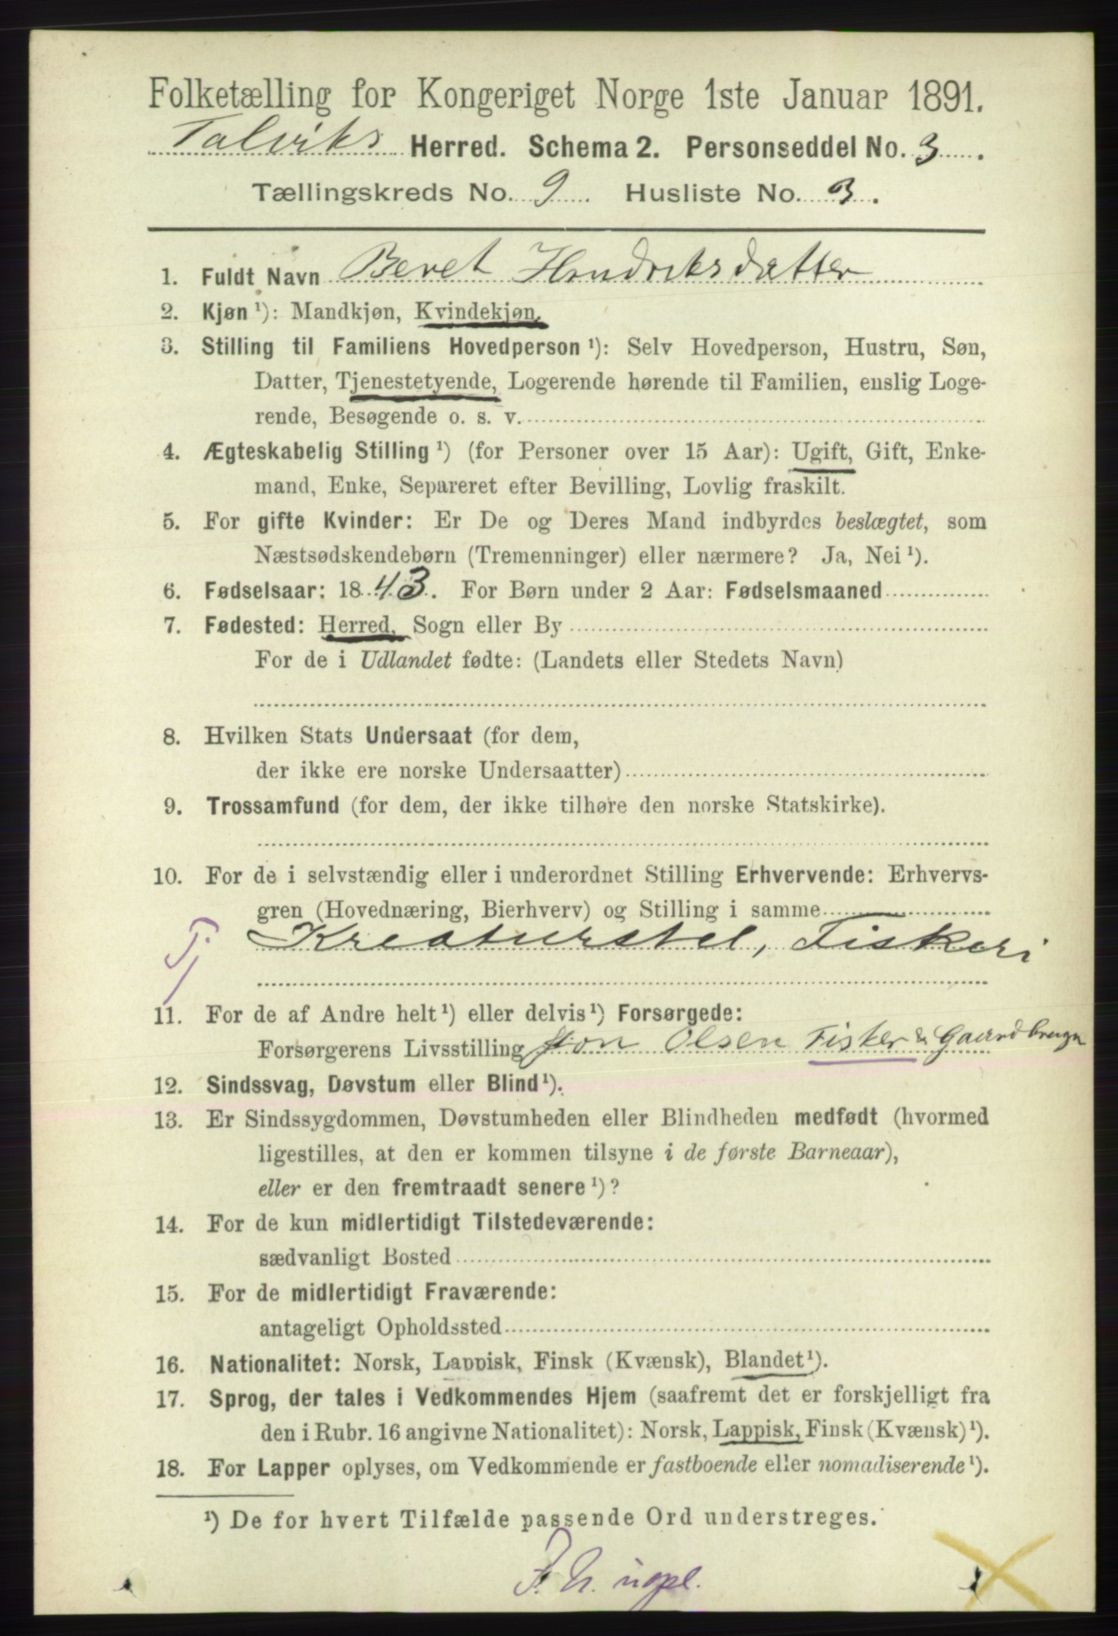 Folketælling for Kongeriget Norge 1ste Januar 1891.
Talviks Herred. Schema 2. Personseddel No. 3.
Tællingskreds No. 9 Husliste No. 3.
1. Fuldt Navn Beret Hendriksdatter
2. Kjøn ¹): Mandkjøn, Kvindekjøn.
3. Stilling til Familiens Hovedperson ¹): Selv Hovedperson, Hustru, Søn,
Datter, Tjenestetyende, Logerende hørende til Familien, enslig Loge-
rende, Besøgende o. s. v.
4. Ægteskabelig Stilling ¹) (for Personer over 15 Aar): Ugift, Gift, Enke-
mand, Enke, Separeret efter Bevilling, Lovlig fraskilt.
5. For gifte Kvinder: Er De og Deres Mand indbyrdes beslægtet, som
Næstsødskendebørn (Tremenninger) eller nærmere? Ja, Nei ¹).
6. Fødselsaar: 1843. For Børn under 2 Aar: Fødselsmaaned
7. Fødested: Herred, Sogn eller By
For de i Udlandet fødte: (Landets eller Stedets Navn)
8. Hvilken Stats Undersaat (for dem,
der ikke ere norske Undersaatter)
9. Trossamfund (for dem, der ikke tilhøre den norske Statskirke).
10. For de i selvstændig eller i underordnet Stilling Erhvervende: Erhvervs-
gren (Hovednæring, Bierhverv) og Stilling i samme
Tj Kreaturstel, Fiskeri
11. For de af Andre helt ¹) eller delvis ¹) Forsørgede:
Forsørgerens Livsstilling Jon Olsen Fisker & Gaardbruger
12. Sindssvag, Døvstum eller Blind ¹).
13. Er Sindssygdommen, Døvstumheden eller Blindheden medfødt (hvormed
ligestilles, at den er kommen tilsyne i de første Barneaar),
eller er den fremtraadt senere ¹)?
14. For de kun midlertidigt Tilstedeværende:
sædvanligt Bosted
15. For de midlertidigt Fraværende:
antageligt Opholdssted
16. Nationalitet: Norsk, Lappisk, Finsk (Kvænsk), Blandet ¹).
17. Sprog, der tales i Vedkommendes Hjem (saafremt det er forskjelligt fra
den i Rubr. 16 angivne Nationalitet): Norsk, Lappisk, Finsk (Kvænsk) ¹).
18. For Lapper oplyses, om Vedkommende er fastboende eller nomadiserende ¹).
¹) De for hvert Tilfælde passende Ord understreges.